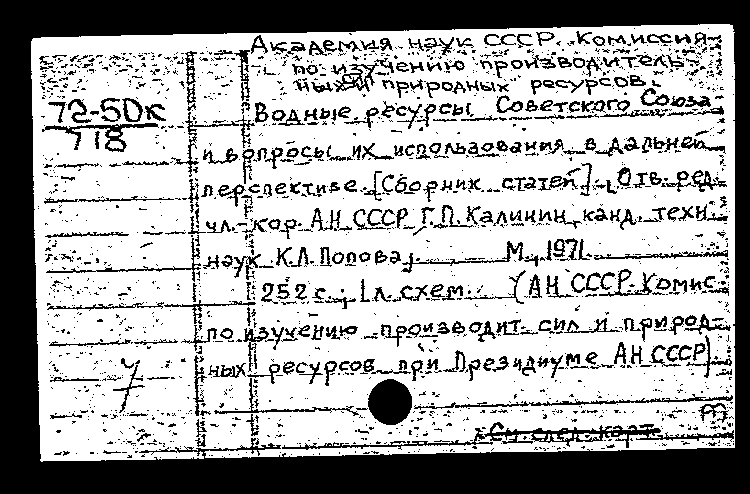 Академия наук СССР. Комиссия
по изучению производитель-
ных и природных ресурсов.
72-50к
718
Водные ресурсы Советского Союза
и вопросы их использования в дальней
перспективе. [Сборник статей]. Отв. ред.
чл.-кор. АН СССР Г.П. Калинин, канд. техн.
наук К.Л. Попова. М., 1971.
252 с.; 1 л. схем. (АН СССР. Комис.
по изучению производит. сил и природ-
ных ресурсов при Президиуме АН СССР).
7
См. след. карт.